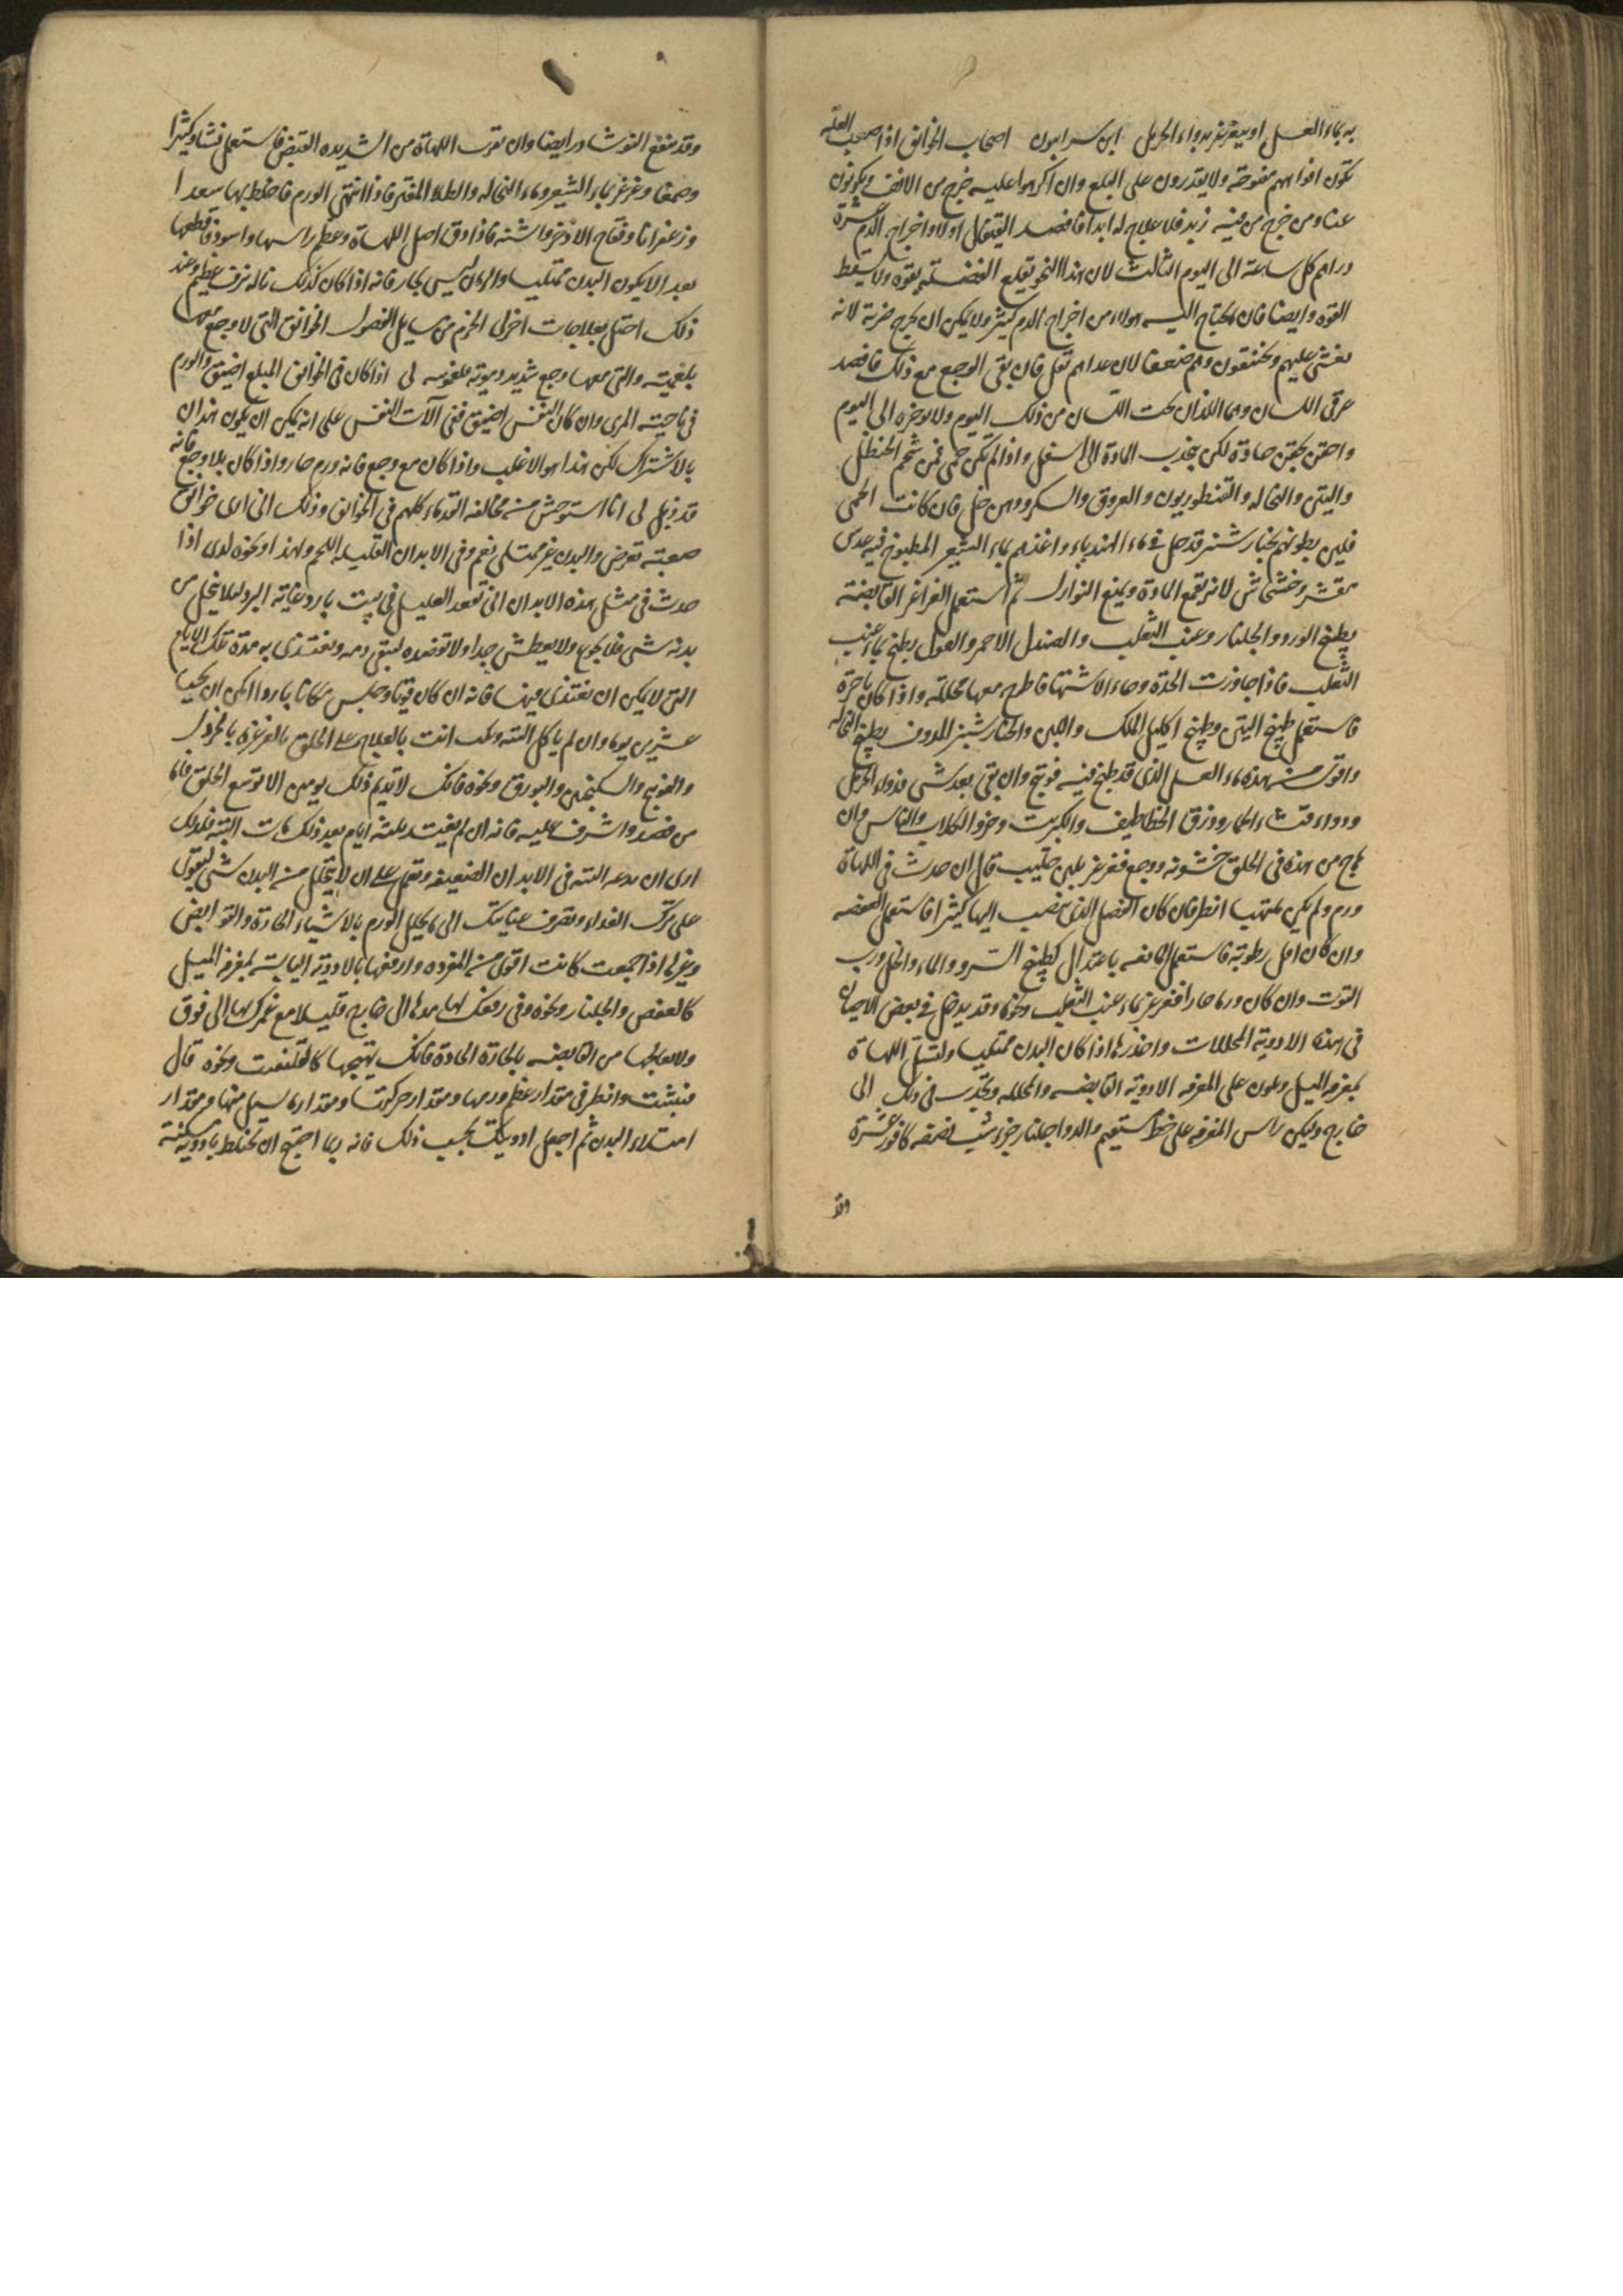 به بماء العسل او يتغرغر بدواء الحرمل ابن سرابيون اصحاب الخوانيق اذا صعبت العلة
تكون افواههم مفتوحة ولا يقدرون على البلع وان اكرهوا عليه خرج من الانف ويكونون
ومن خرج من فيه زبد فلا علاج له ابدا فافصد القيفال اولا واخراج الدم عشرة
دراهم كل ساعة الى اليوم الثالث لان هذا النحو يقلع الفضلة بقوة ولا يسقط
القوة وايضا فان يحتاج اليه هولاء من اخراج الدم كثير ولا يمكن ان يخرج ضربة لانه
يغشى عليهم ويختنقون وهم ضعفا لان غذاهم تقل فان بقى الوجع مع ذلك فافصد
عرقى اللسان وهما اللذان تحت اللسان من ذلك اليوم ولا توخره الى اليوم
واحقن بحقن حادة لكى يجذب المادة الى اسفل واذا لم تكن حمى فمن شحم الحنظل
والتين والنخاله والقنطوريون والعروق والسكر ودهن خل فان كانت الحمى
فلين بطونهم بخيار شنبر قد حل فى ماء الهندباء واغذهم بماء الشعير المطبوخ فيه عدس
مقشر وخشخاش لانه يقمع المادة ويمنع النوازل ثم استعمل الغراغر القابضة
بطبيخ الورد والجلنار وعنب الثعلب والصندل الاحمر والفول يطبخ بماء عنب
الثعلب فاذا جاوزت الحدة وجاء الانتها فاطرح معها محللة واذا كان باخرة
فاستعمل طبيخ التين وطبيخ اكليل الملك واللبن والخيار شنبر المدوف بطبيخ النخالة
واقوى من هذه ماء العسل الذى قد طبخ فيه فوتنج وان بقى بعد شى فدواء الحرمل
ودواء قثاء الحمار وذرق الخطاطيف والكبريت وخرو الكلاب والناس وان
هاج من هذه فى الحلق خشونة ووجع فغرغر بلبن حليب قال ان حدث فى اللهاة
ورم ولم يكن ملتهبا انظر فان كان الفضل الذى ينصب اليها كثيرا فاستعمل العفصة
وان كان اقل رطوبة فاستعمل القابضه باعتدال كطبيخ السرو والماء والخل ورب
التوت وان كان ورما حارا فغرغر بماء عنب الثعلب ونحوها وقد يدخل فى بعض الاحيان
فى هذه الادوية المحللات واحذرها اذا كان البدن ممتليا ولتشل اللهاة
بمغرفة الميل ويكون على المغرفه الادوية القابضه والمحلله وتجذب فى ذلك الى
خارج وليكن راس المغرفه على خط مستقيم والدوا جلنار جزء شب نصفه كافور عشرة
وقد
وقد ينفع النوشادر ايضا وان تقرب اللهاة من الشديده القبض فاستعمل نشا وكثيرا
وصمغا وغرغر بماء الشعير وماء النخاله والطلا المفتر فاذا انتهى الورم فاخلط بها سعدا
وزعفرانا وفقاح الاذخر واشنه فاذا دق اصل اللهاة وعظم راسها واسود فاقطعها
بعد الا يكون البدن ممتليا والزمان ليس بحار فانه اذا كان كذلك ناله نزف عظيم وعند
ذلك احتل بعلاجات اخرى الجزم من مسايل الفصول الخوانيق التى لا وجع معها
بلغمية والتى معها وجع شديد دموية ملغوسه لى اذا كان فى الخوانيق المبلع اضيق والورم
فى ناحية المرى وان كان التنفس اضيق ففى آلات النفس على انه يمكن ان يكون هذان
بالاشتراك لكن هذا هو الاغلب واذا كان مع وجع فانه ورم حار واذا كان بلا وجع فانه
قد ذبل لى انا استوحش من مخالفة القدماء كلهم فى الخوانيق وذلك انى ارى خوانيق
صعبة تعرض والبدن غير ممتلى نعم وفى الابدان القليله اللحم ولهذا ونحوه لدى اذا
حدث فى مثل هذه الابدان انى تقعد العليل فى بيت بارد وغاية البرد لئلا يتحلل من
بدنه شى فلا يجوع ولا يعطش جدا ولا تفصده ليبقى دمه ويغتذى به مدة تلك الايام
التى لا يمكن ان يغتذى فيها فانه ان كان قويا وجلس مكانا باردا امكن ان يحيا
عشرين يوما وان لم ياكل البتة وعليك انت بالعلاج على الحلق بالغرغرة بالخردل
والفوتنج والسكنجبين والبورق ونحوه فانك لا تديم ذلك يومين الا توسع الحلق فاما
من فصد واشرف عليه فانه ان لم يغتذ بثلاثة ايام بعد ذلك مات البتة فلذلك
ارى ان ندعه البتة فى الابدان الضعيفه ونعمل على ان لا يتحلل من البدن شى ليقوى
على ترك الغذاء ونصرف عنايتك الى ما يحلل الورم بالاشياء الحادة والقوابض
وغيرها اذا جمعت كانت اقوى من المفرده وارفعها بالادوية اليابسة بمغرفة الميل
كالعفص والجلنار ونحوه وفى رفعك لها مدها الى خارج قليلا مع غمزك لها الى فوق
ولا تعالجها من القابضه بالحادة فانك تهيجها كالقلقند ونحوه قال
فتثبت وانظر فى مقدار عظم ورمها ومقدار حركتها ومقدار ما يسيل منها ومقدار
امتلاء البدن ثم اجعل ادويتك بحسب ذلك فانه ربما احتيج ان تخلط بادوية مسكنة